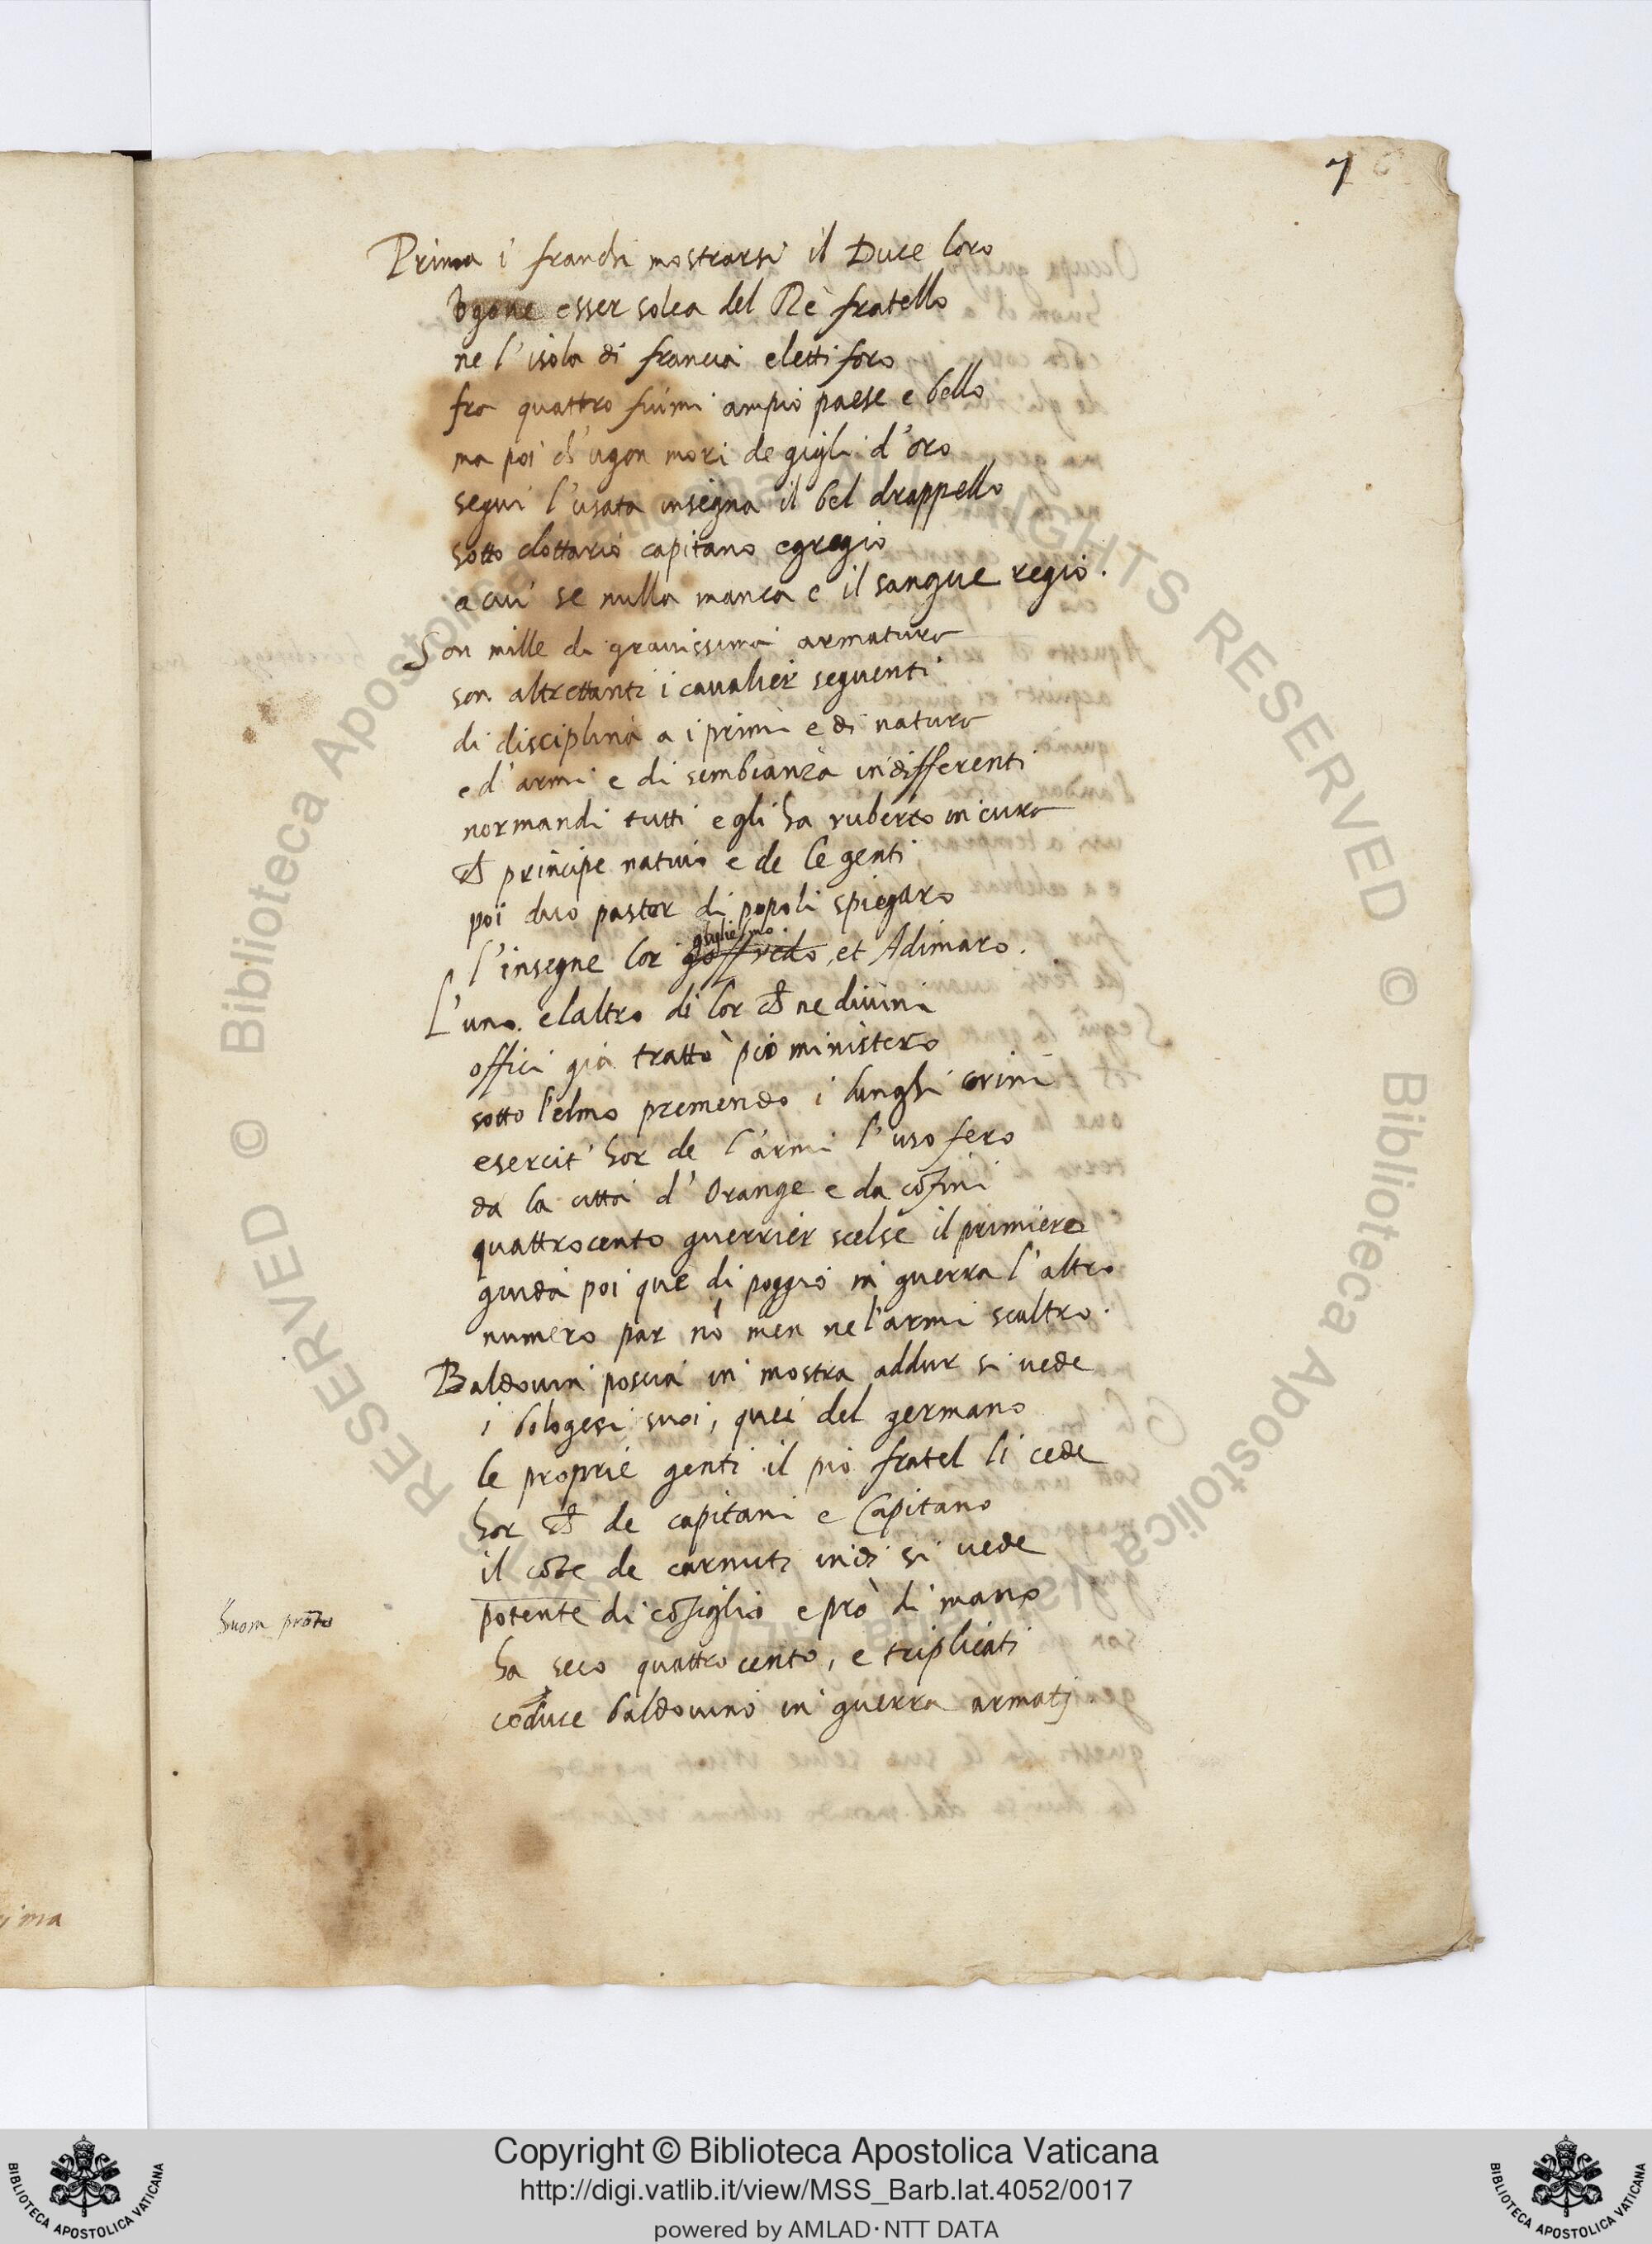 7
Prima i franchi mostrarsi il Duce loro
Vgone esser solea del Rè fratello
ne l'isola di francia eletti foro
fra quattro fiumi ampio paese e bello
ma poi ch'ugon morì de gigli d'oro
seguì l'usata insegna il bel drappello
sotto clottario capitano egregio
a cui se nulla manca e il sangue regio.
Son mille di grauissima armatura
son altrettanti i caualier seguenti
di disciplina a i primi e di natura
e d'armi e di sembianza indifferenti
normandi tutti e gli ha ruberto in cura
ch principe natiuo e de le genti
poi duo pastor di popoli spiegaro
guglielmo.
l'insegne lor goffredo, et Adimaro.
L'uno. e laltro di lor ch ne diuini
offici già trattò pio ministero
sotto l'elmo premendo i lunghi crini
esercit' hor de l'armi l'uso fero
da la città d'Orange e da cōfini
quattrocento guerrier scelse il primiero
guida poi que di poggio in guerra l'altro
numero par nō men ne l'armi scaltro.
Baldouin poscia in mostra addur si uede
i bologesi suoi, quei del germano
le proprie genti il pio fratel li cede
hor ch de capitani e Capitano
il cōte de carnuti indi si uede
huom prōto
potente di cōsiglio e prò di mano
ha seco quattrocento, e triplicati
cōduce baldouino in guerra armati
ima
RIGHTS RESERVED © Biblioteca Apostolica Vaticana
Copyright © Biblioteca Apostolica Vaticana
http://digi.vatlib.it/view/MSS_Barb.lat.4052/0017
powered by AMLAD·NTT DATA
BIBLIOTECA APOSTOLICA VATICANA
BIBLIOTECA APOSTOLICA VATICANA